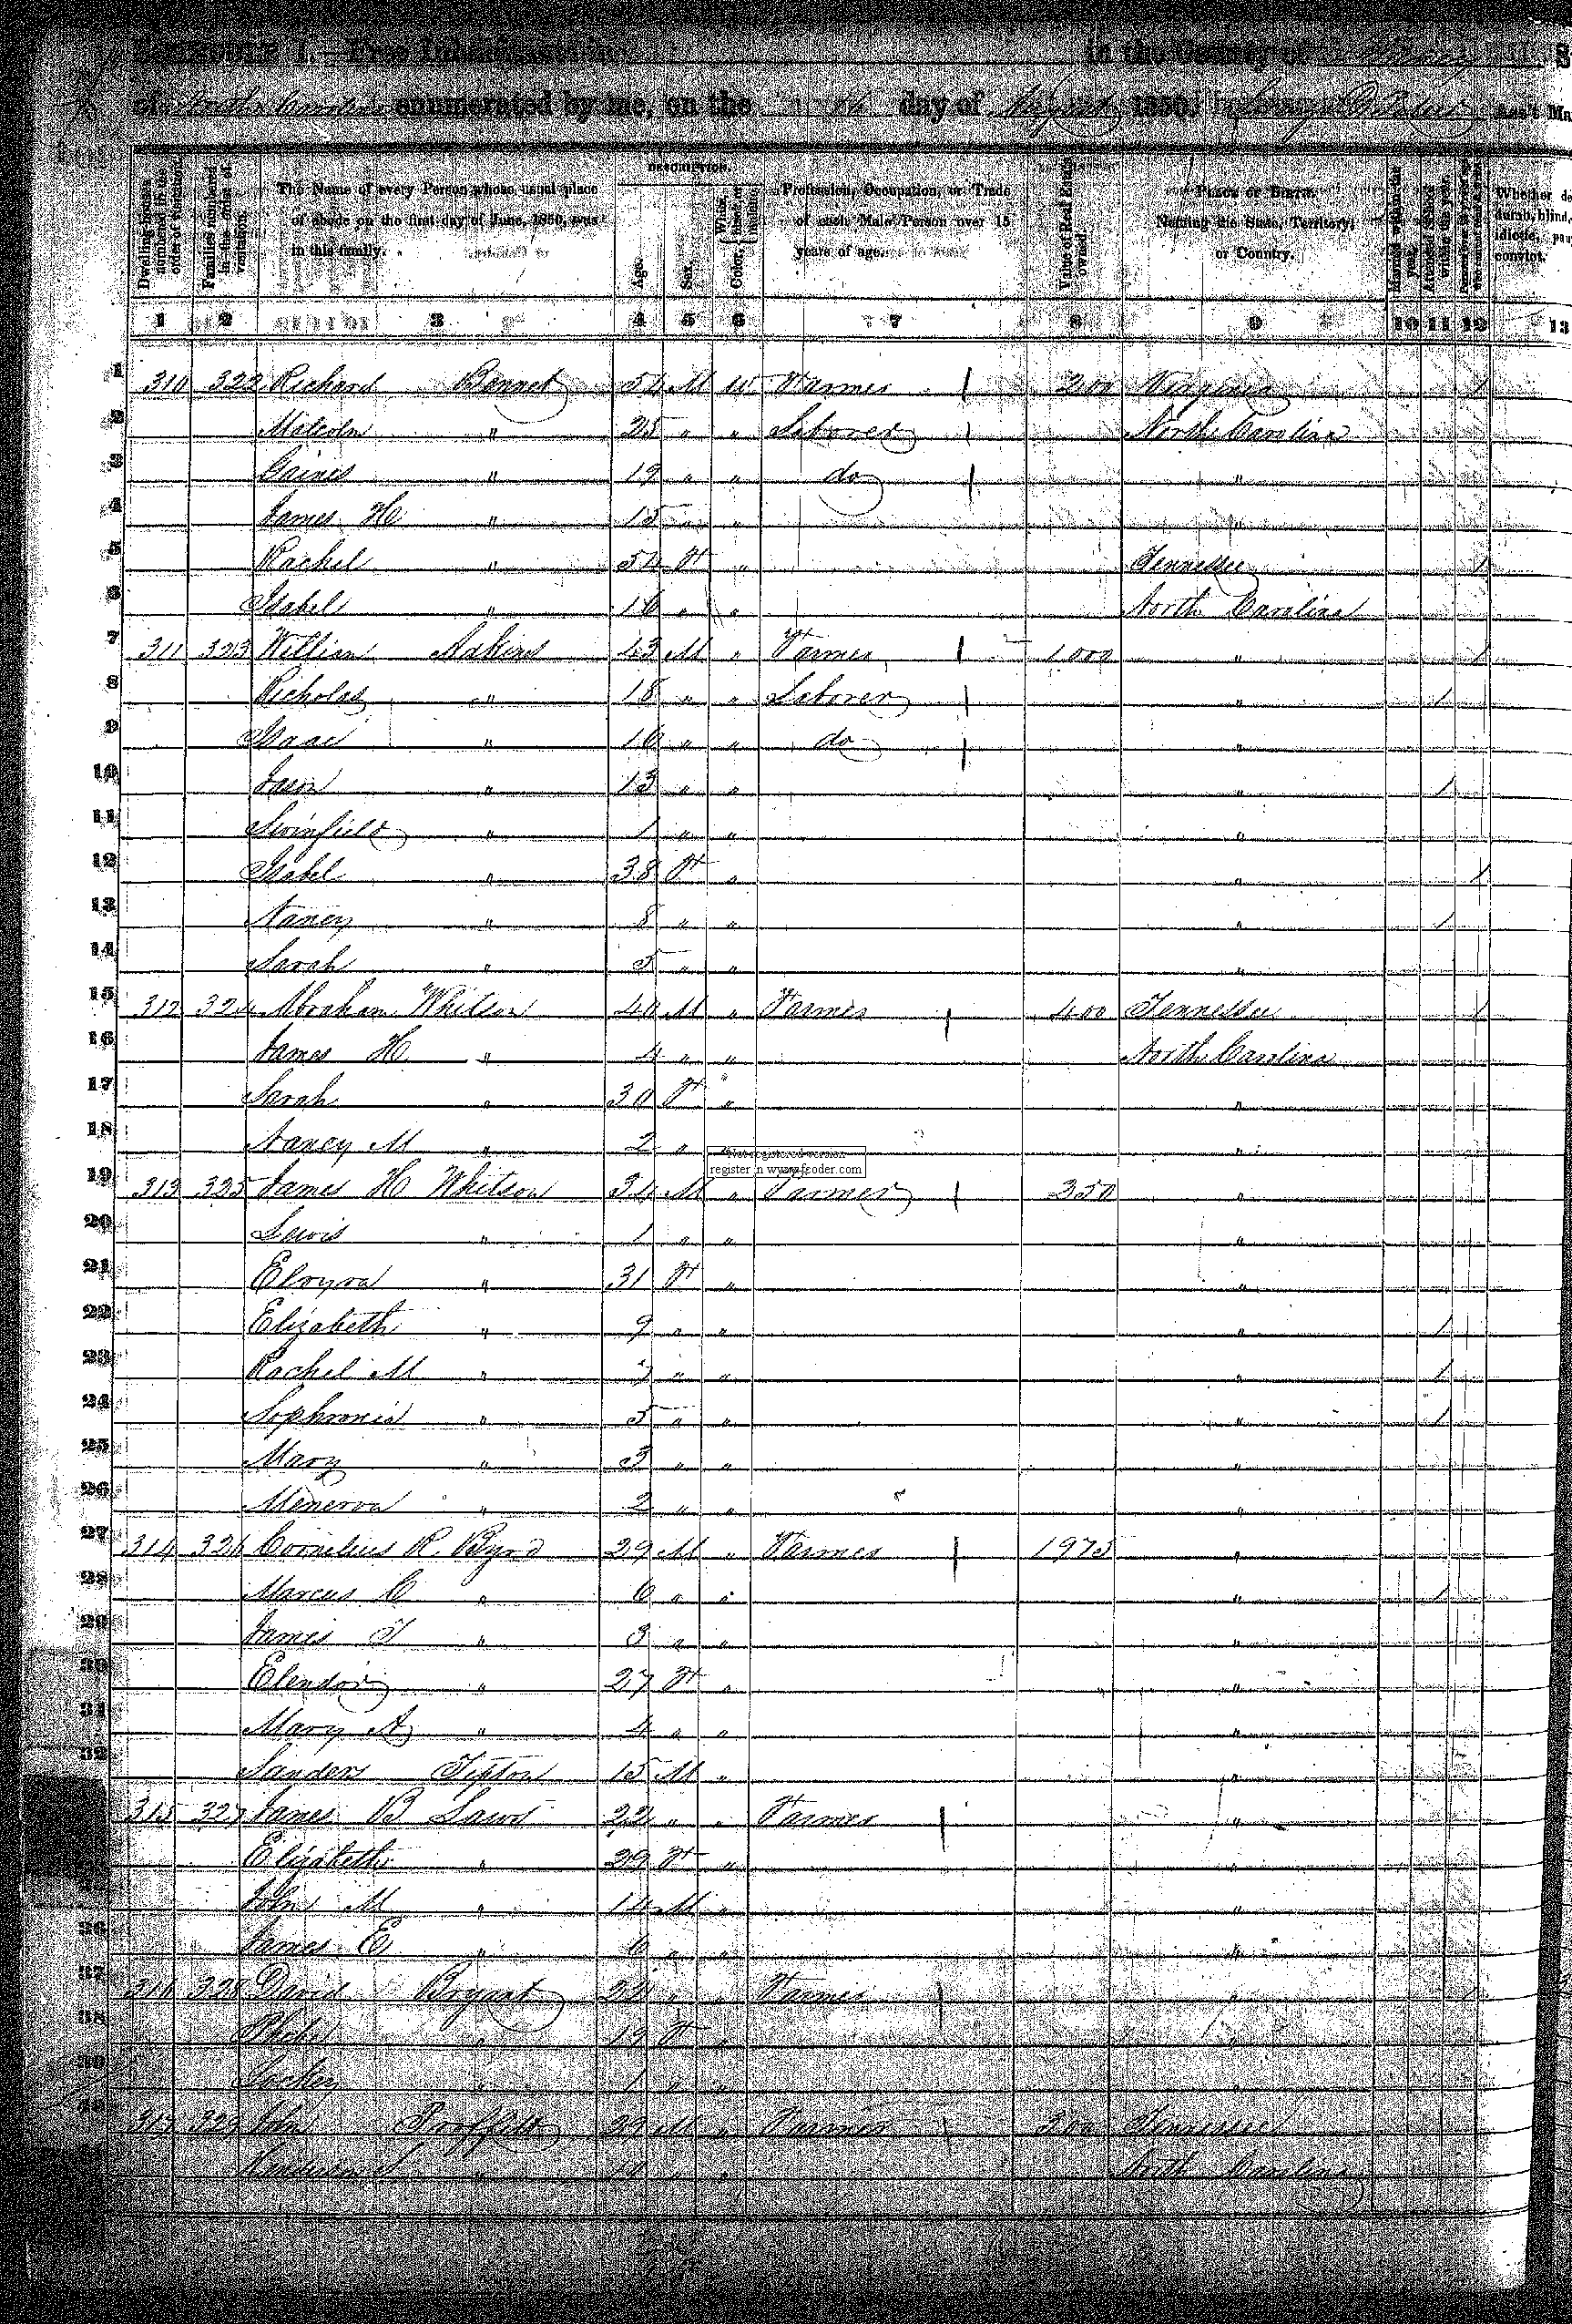 SCHEDULE I.—Free Inhabitants in in the County of
of North Carolina enumerated by me, on the day of August 1850. Ass't Ma
DESCRIPTION.
Dwelling-houses numbered in the order of visitation.
Families numbered in the order of visitation.
The Name of every Person whose usual place of abode on the first day of June, 1850, was in this family.
Age.
Sex.
Color, White, black, or mulatto.
Profession, Occupation, or Trade of each Male Person over 15 years of age.
Value of Real Estate owned.
PLACE OF BIRTH. Naming the State, Territory, or Country.
Married within the year.
Attended School within the year.
Whether de dumb, blind, idiotic, pau convict.
1 2 3 4 5 6 7 8 9 10 11 12 13
1 310 322 Richard Bennet 54 M W Farmer 200 Virginia 1
2 Malcolm " 25 " " Laborer North Carolina
3 Gaines " 19 " " do "
4 James H " 15 " " "
5 Rachel " 54 F " Tennessee 1
6 Isabel " 16 " " North Carolina
7 311 323 William Adkins 43 M " Farmer 1000 " 1
8 Nicholas " 18 " " Laborer " 1
9 Isaac " 16 " " do "
10 Jason " 13 " " " 1
11 Swinfield " 1 " " "
12 Isabel " 38 F " " 1
13 Nancy " 8 " " " 1
14 Sarah " 5 " " "
15 312 324 Abraham Whitson 40 M " Farmer 400 Tennessee 1
16 James H " 4 " " North Carolina
17 Sarah " 30 F " "
18 Nancy M " 2 " "
Not registered version
register in www.fcoder.com
19 313 325 James H Whitson 34 M " Farmer 350 "
20 Lewis " 1 " " "
21 Elvyra " 31 F " "
22 Elizabeth " 9 " " " 1
23 Rachel M " 7 " " " 1
24 Sophronia " 5 " " " 1
25 Mary " 3 " " "
26 Menerva " 2 " " "
27 314 326 Cornelius R. Byrd 29 M " Farmer 1975 "
28 Marcus C " 6 " " " 1
29 James T " 3 " " "
30 Elendor " 27 F " "
31 Mary A " 4 " " "
32 Sanders Tipton 15 M " "
315 327 James B Laws 22 " " Farmer "
Elizabeth " 29 F " "
John M " 14 M "
36 James E " 6 " "
37 316 328 David Bryant 24 " Farmer "
38 Phebe " 19 F "
1 "
317 329 John Proffitt 29 M " Farmer 300 Tennessee
North Carolina